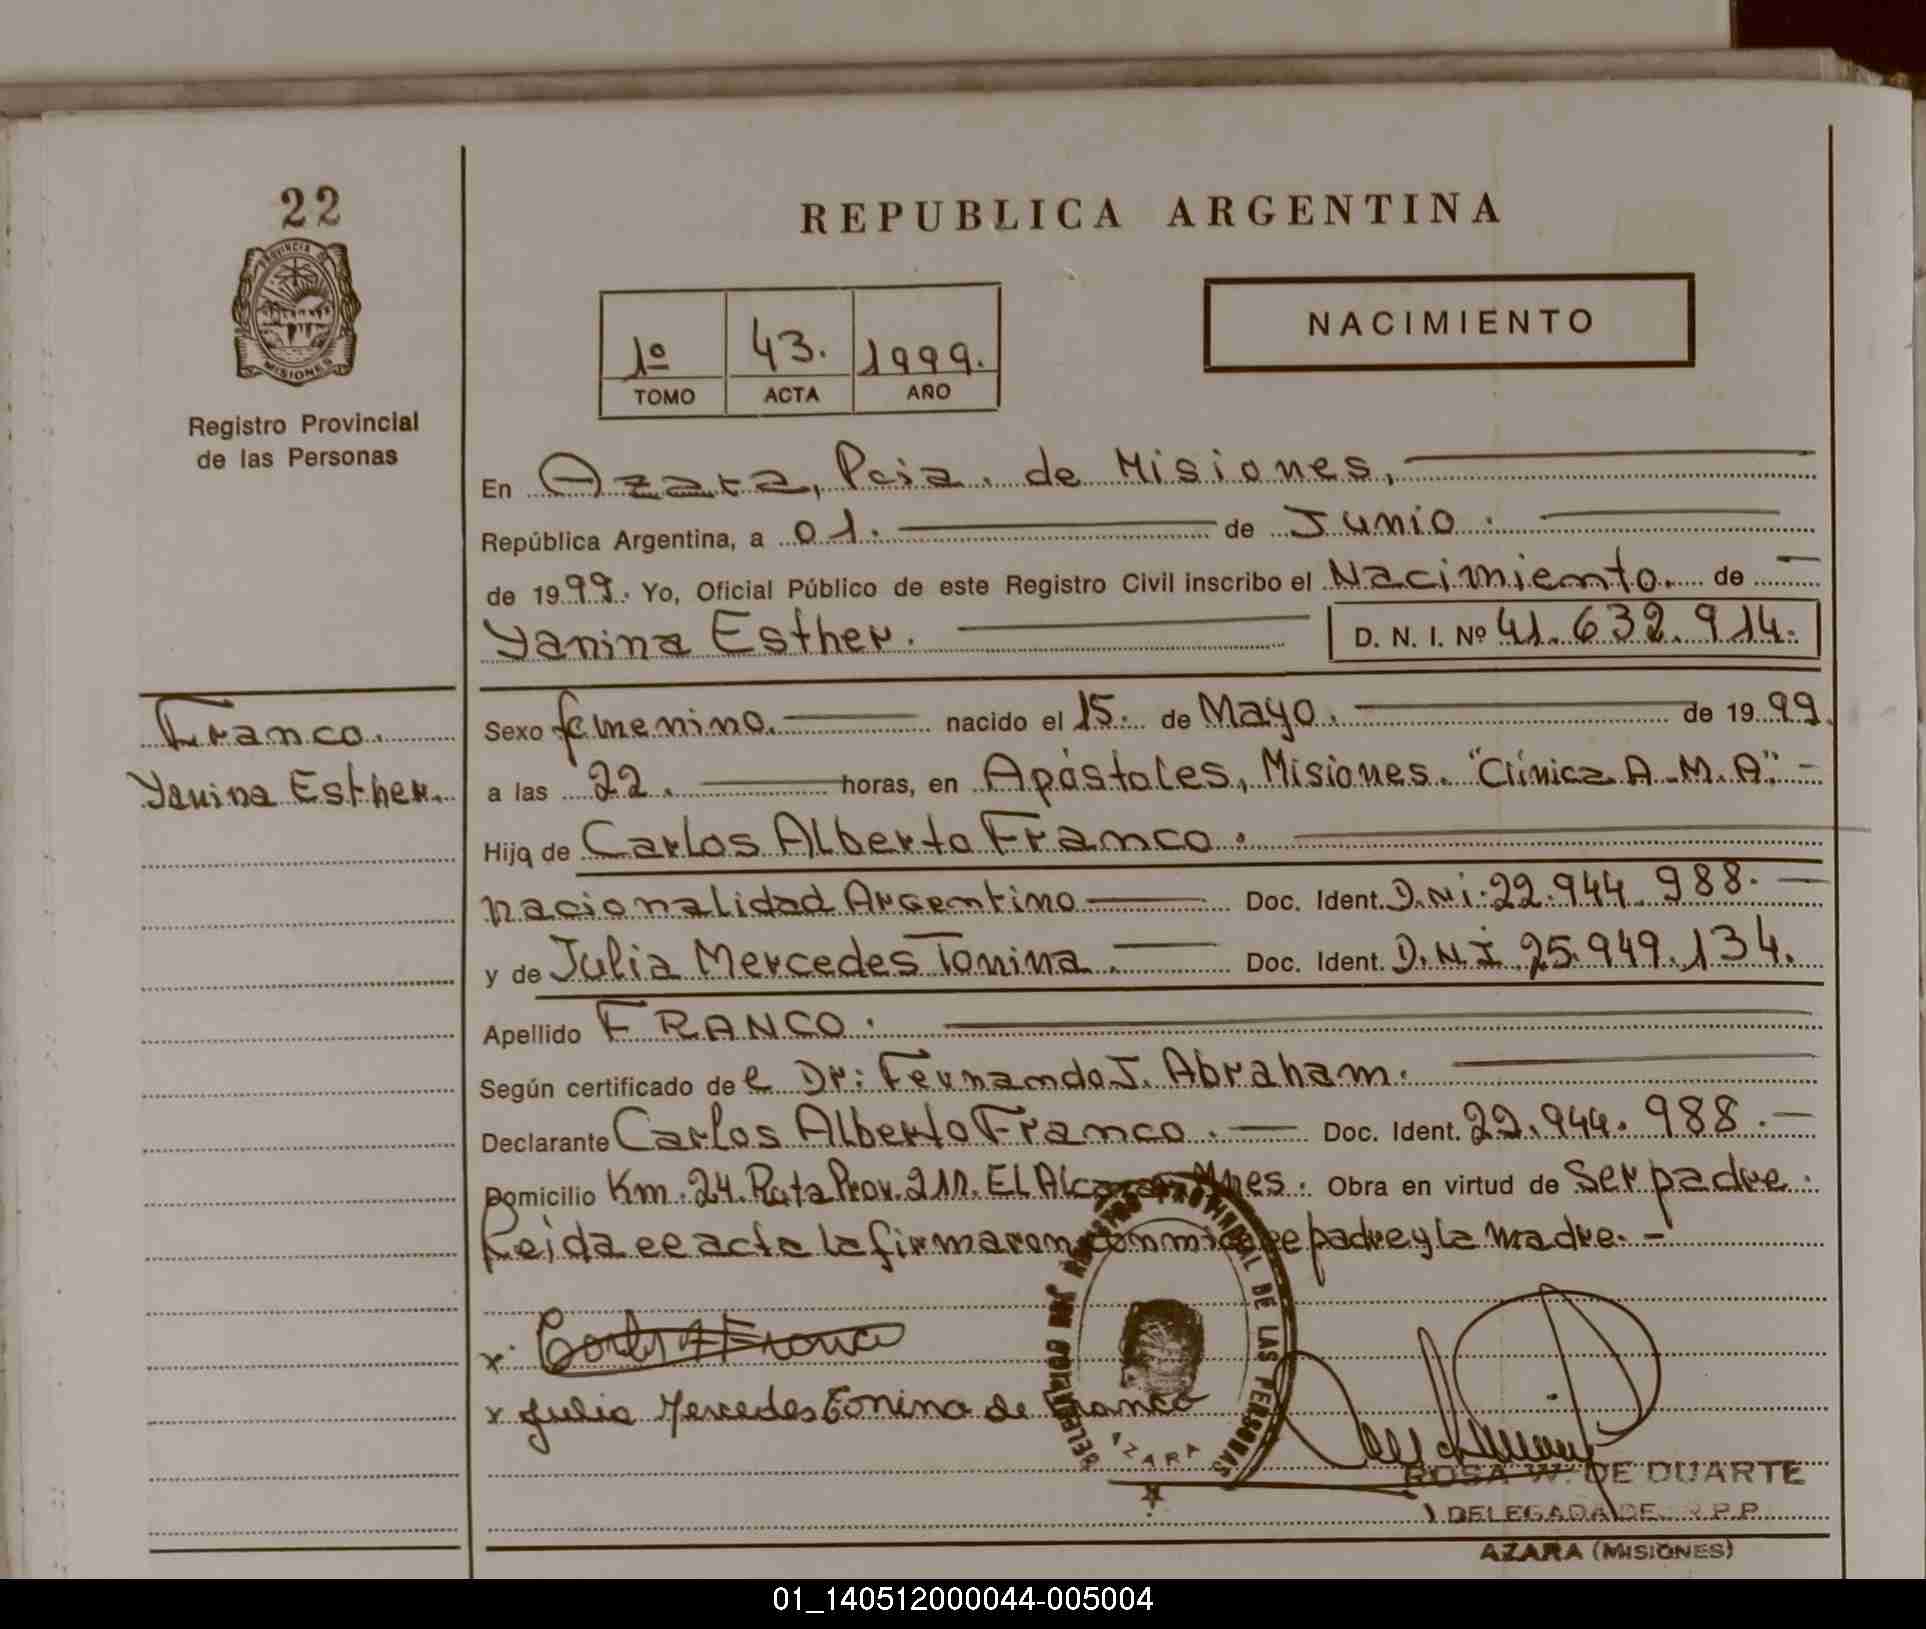 22
PROVINCIA DE
MISIONES
Registro Provincial
de las Personas
REPUBLICA ARGENTINA
1º 43. 1999.
TOMO ACTA AÑO
NACIMIENTO
En Azara, Pcia. de Misiones,
República Argentina, a 01. de Junio.
de 1999. Yo, Oficial Público de este Registro Civil inscribo el Nacimiento. de
Yanina Esther. D. N. I. Nº 41.632.914.
Franco.
Yanina Esther.
Sexo femenino. nacido el 15. de Mayo. de 1999.
a las 22. horas, en Apóstoles, Misiones. "Clínica A.M.A"
Hija de Carlos Alberto Franco.
nacionalidad Argentino Doc. Ident. D.N.i. 22.944.988.
y de Julia Mercedes Tonina. Doc. Ident. D.N.I. 25.949.134.
Apellido FRANCO.
Según certificado de e Dr: Fernando J. Abraham.
Declarante Carlos Alberto Franco. Doc. Ident. 22.944.988.
Domicilio Km. 24. Ruta Prov. 211. EL Alcazar Mnes. Obra en virtud de Ser padre.
Leida ee acta la firmaron conmigo ee padre y la madre.
x. Carlos A Franco
x Julia Mercedes Tonina de Franco
DELEGACION DEL REGISTRO PROVINCIAL DE LAS PERSONAS
AZARA
ROSA W. DE DUARTE
DELEGADA DE R.P.P.
AZARA (MISIONES)
01_140512000044-005004